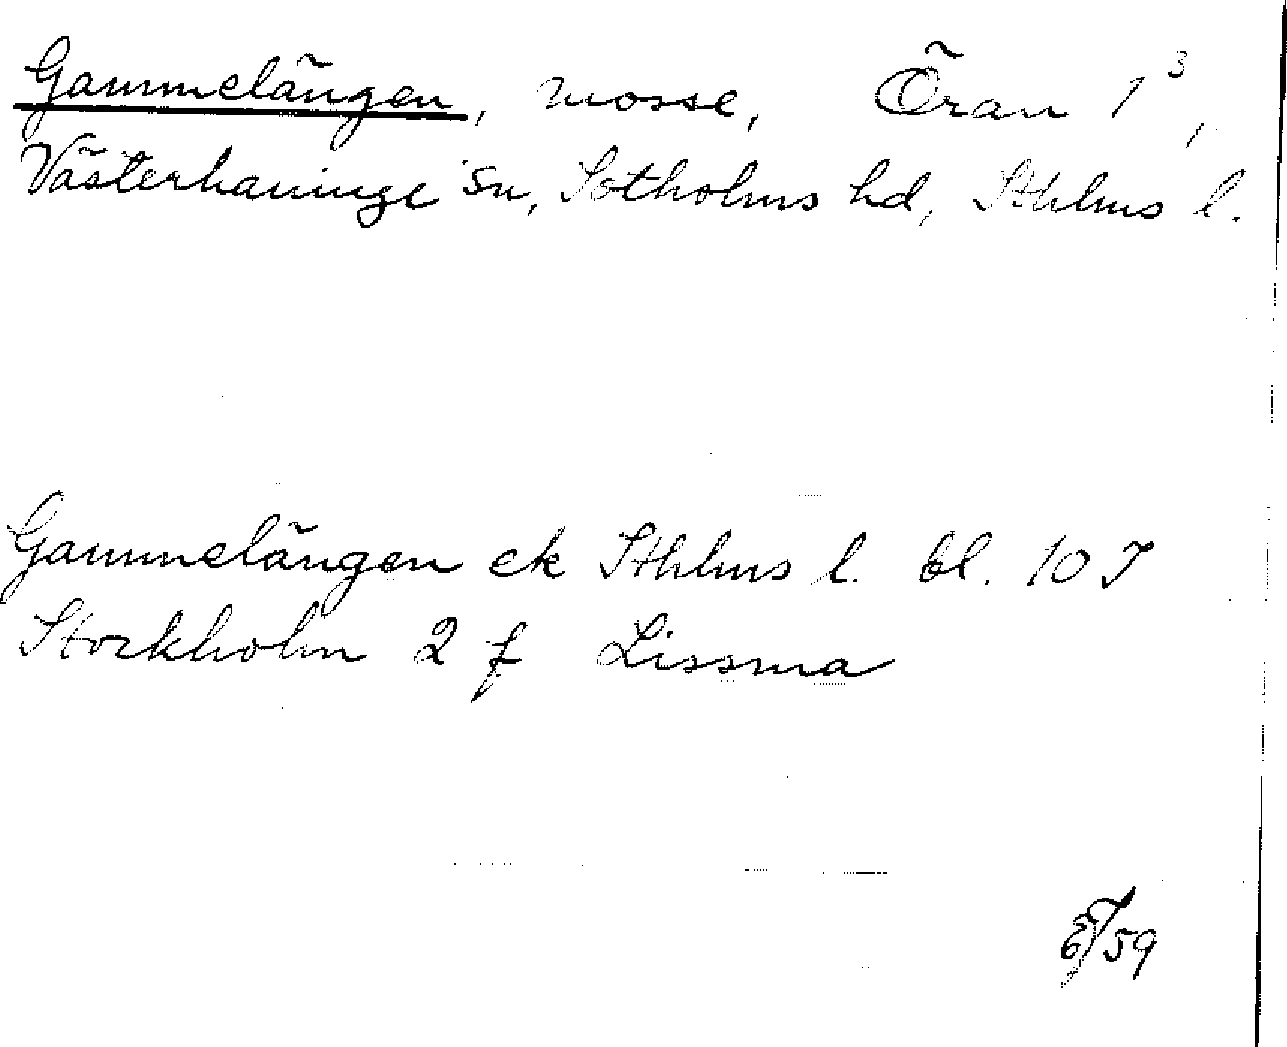 Gammelängen, mosse, Öran 1³,
Västerhaninge sn, Sotholms hd, Sthlms l.
Gammelängen ek Sthlms l. bl. 10 I
Stockholm 2 f Lissma
59